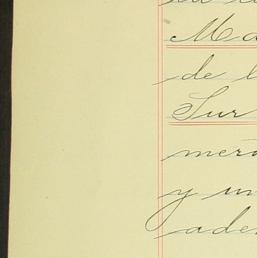 Ma
de l
Sur
mer
y un
ade